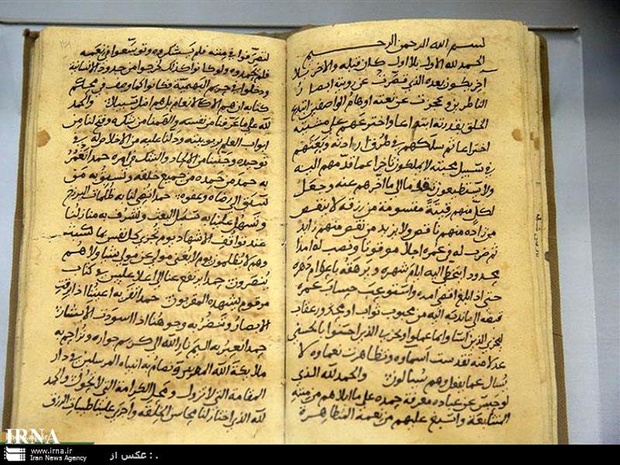 بسم الله الرحمن الرحيم
الحمد لله الاول بلا اول كان قبله والاخر بلا
اخر يكون بعده الذي قصرت عن رويته ابصار
الناظرين وعجزت عن نعته اوهام الواصفين ابتدع
الخلق بقدرته ابتداعا واخترعهم على مشيته
اختراعا ثم سلك بهم طريق ارادته وبعثهم
في سبيل محبته لا يملكون تاخيرا عما قدمهم اليه
ولا يستطيعون تقدما الى ما اخرهم عنه وجعل
لكل منهم مقسومة من رزقه لا ينقص
من زاده منهم ناقص ولا يزيد من نقص منهم زايد
ثم ضرب له في عمره اجلا موقوتا ونصب له امدا
محدودا يتخطى اليه بايام شهره ويرهقه باعوام دهره
حتى اذا بلغ اقصى امده واستوعب حساب عمره
قبضه الى ما ندبه اليه من محبوب ثوابه او محذور عقابه
ليجزي الذين اساوا بما عملوا ويجزي الذين احسنوا بالحسنى
عدلا منه تقدست اسماوه وتظاهرت نعماوه لا
يسال عما يفعل وهم يسالون والحمد لله الذي
لو حبس عن عباده معرفة حمده على ما ابلاهم من مننه
المتتابعة واسبغ عليهم من نعمه المتظاهرة
لتصرفوا في مننه فلم يشكروه وتوسعوا في نعمه
فلم يحمدوه ولو كانوا كذلك لخرجوا من حدود الانسانية
ودخلوا في حيز البهيمية فكانوا كما وصف في محكم
كتابه ان هم الا كالانعام بل هم اضل سبيلا والحمد
لله على ما عرفنا من نفسه والهمنا من شكره وفتح لنا من
ابواب العلم بربوبيته ودلنا عليه من الاخلاص في
توحيده وجنبنا من الالحاد والشك في امره حمدا نعمر
به حمد من حمده من جميع خلقه ونسبق به من
سبق الى رضاه وعفوه حمدا يضي لنا به ظلمات البرزخ
ويسهل علينا به سبل المبعث ويشرف به منازلنا
عند مواقف الاشهاد يوم تجزى كل نفس بما كسبت
وهم لا يظلمون يوم لا يغني مولى عن مولى شيئا ولا هم
ينصرون حمدا يرتفع منا الى اعلا عليين في كتاب
مرقوم يشهده المقربون حمدا تقر به اعيننا اذا برقت
الابصار وتبيض به وجوهنا اذا اسودت الابشار
حمدا نعتق به من اليم نار الله الى كريم جواره ونزاحم به
ملايكة الله المقربين ونضام به انبياه المرسلين في دار
المقامة التي لا تزول ومحل الكرامة التي لا تحول والحمد
لله الذي اختار لنا محاسن الخلق واجرى علينا طيبات الرزق
IRNA
www.irna.ir
Iran News Agency
عکس از :